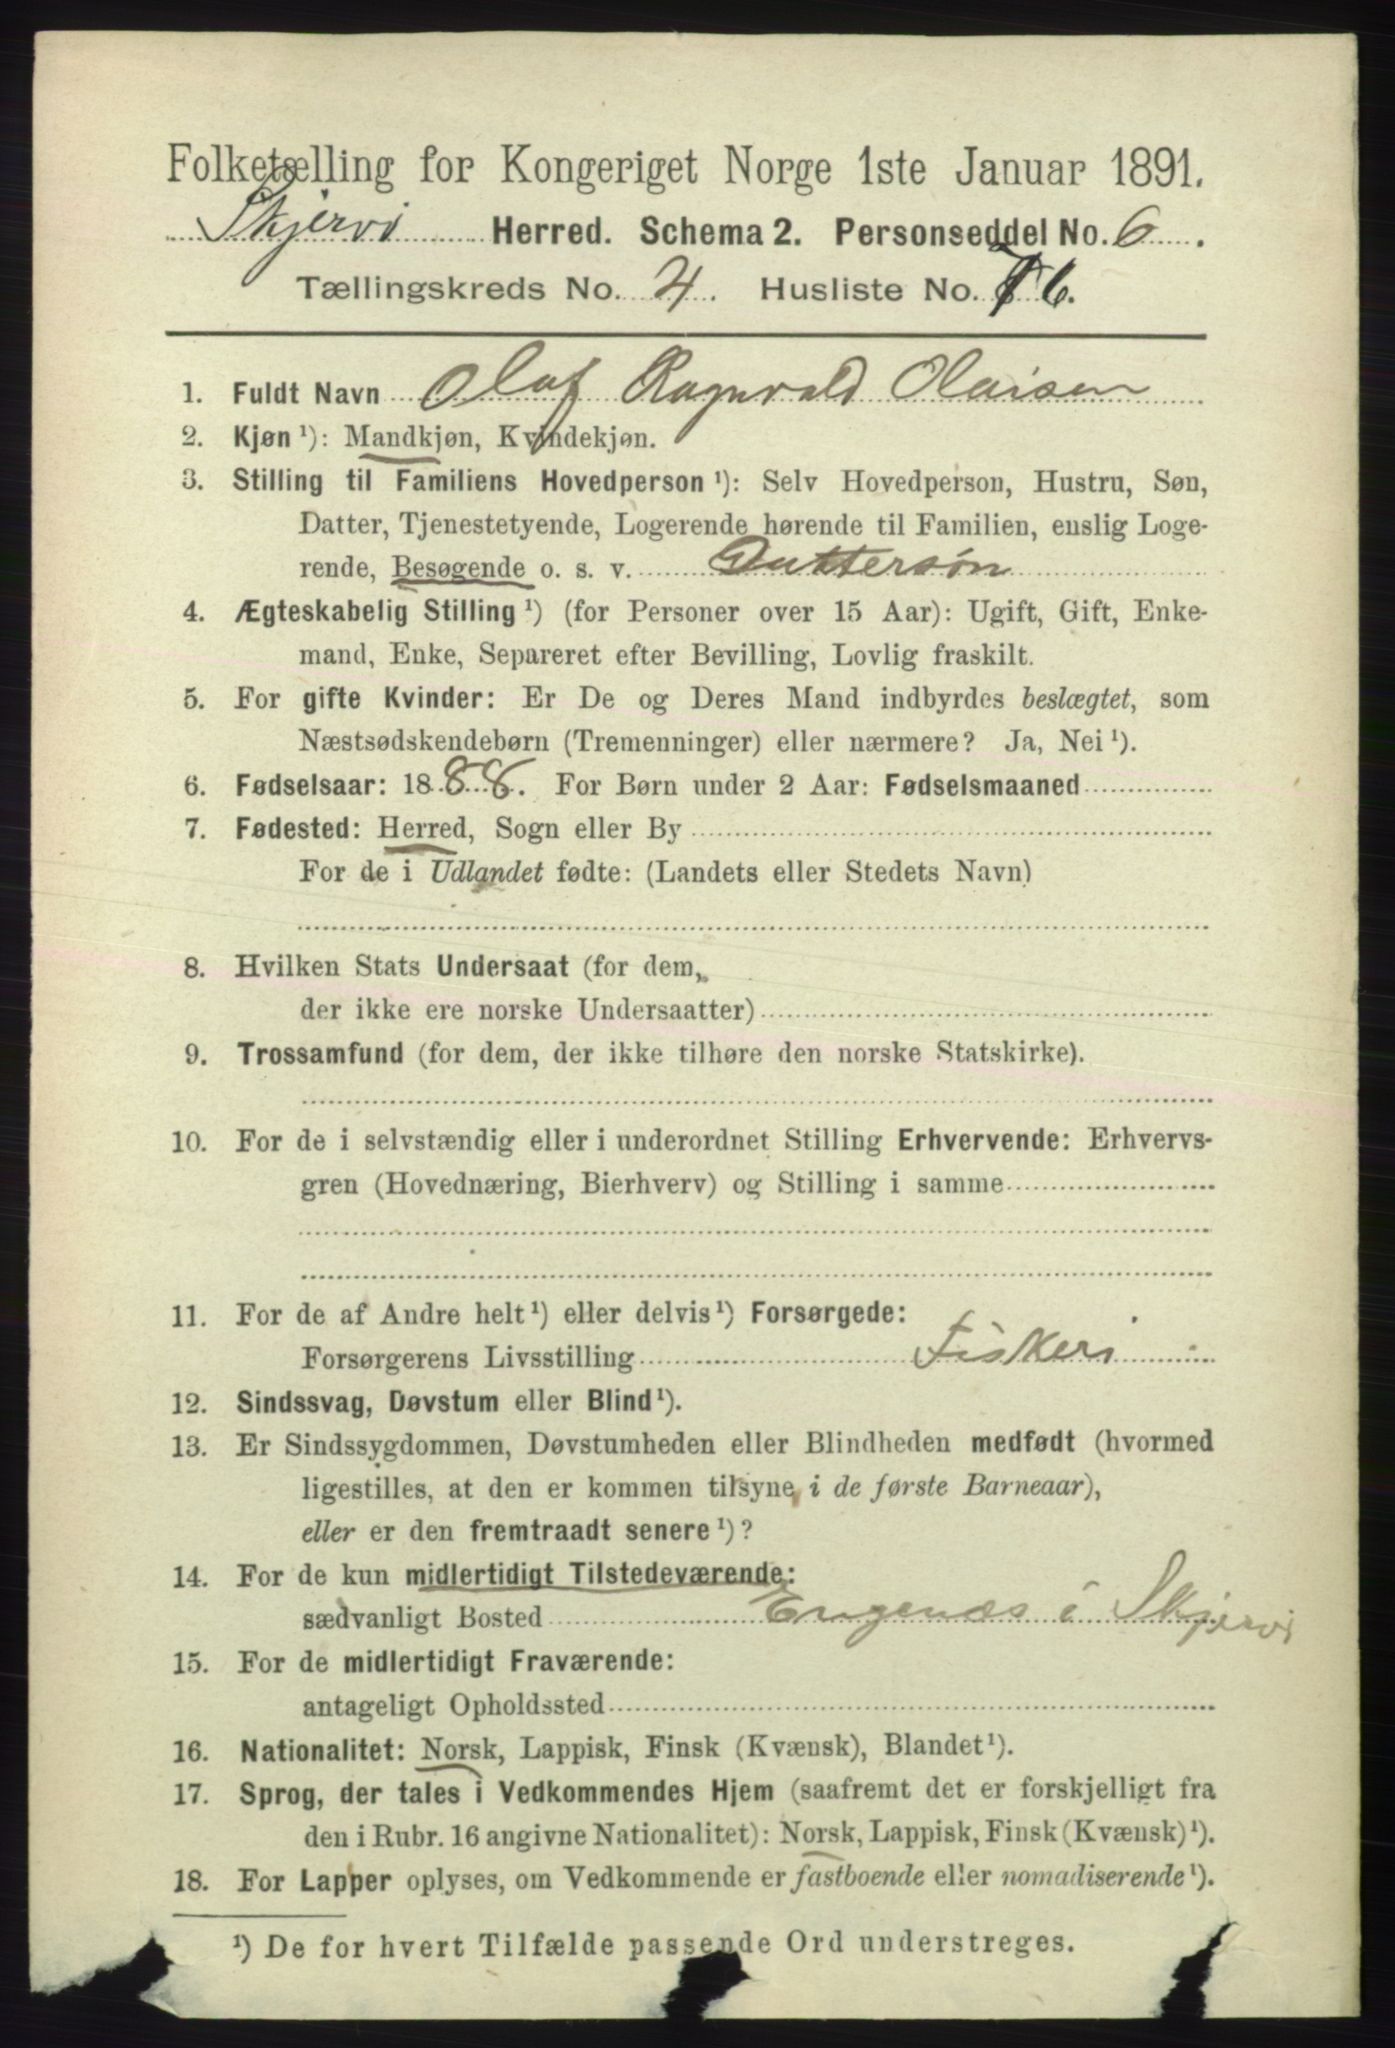 Folketælling for Kongeriget Norge 1ste Januar 1891.
Skjervø Herred. Schema 2. Personseddel No. 6.
Tællingskreds No. 4. Husliste No. 76.
1. Fuldt Navn Olaf Ragnvald Olaisen
2. Kjøn ¹): Mandkjøn, Kvindekjøn.
3. Stilling til Familiens Hovedperson ¹): Selv Hovedperson, Hustru, Søn,
Datter, Tjenestetyende, Logerende hørende til Familien, enslig Loge-
rende, Besøgende o. s. v. Dattersøn
4. Ægteskabelig Stilling ¹) (for Personer over 15 Aar): Ugift, Gift, Enke-
mand, Enke, Separeret efter Bevilling, Lovlig fraskilt.
5. For gifte Kvinder: Er De og Deres Mand indbyrdes beslægtet, som
Næstsødskendebørn (Tremenninger) eller nærmere? Ja, Nei ¹).
6. Fødselsaar: 1888. For Børn under 2 Aar: Fødselsmaaned
7. Fødested: Herred, Sogn eller By
For de i Udlandet fødte: (Landets eller Stedets Navn)
8. Hvilken Stats Undersaat (for dem,
der ikke ere norske Undersaatter)
9. Trossamfund (for dem, der ikke tilhøre den norske Statskirke).
10. For de i selvstændig eller i underordnet Stilling Erhvervende: Erhvervs-
gren (Hovednæring, Bierhverv) og Stilling i samme
11. For de af Andre helt ¹) eller delvis ¹) Forsørgede:
Forsørgerens Livsstilling Fiskeri
12. Sindssvag, Døvstum eller Blind ¹).
13. Er Sindssygdommen, Døvstumheden eller Blindheden medfødt (hvormed
ligestilles, at den er kommen tilsyne i de første Barneaar),
eller er den fremtraadt senere ¹)?
14. For de kun midlertidigt Tilstedeværende:
sædvanligt Bosted Engenæs i Skjervø
15. For de midlertidigt Fraværende:
antageligt Opholdssted
16. Nationalitet: Norsk, Lappisk, Finsk (Kvænsk), Blandet ¹).
17. Sprog, der tales i Vedkommendes Hjem (saafremt det er forskjelligt fra
den i Rubr. 16 angivne Nationalitet): Norsk, Lappisk, Finsk (Kvænsk) ¹).
18. For Lapper oplyses, om Vedkommende er fastboende eller nomadiserende ¹).
¹) De for hvert Tilfælde passende Ord understreges.